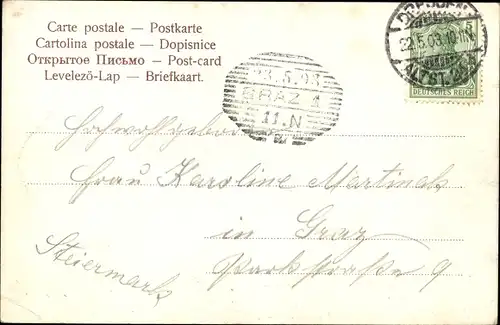 Carte postale — Postkarte
Cartolina postale — Dopisnice
Открытое Письмо — Post-card
Levelező-Lap — Briefkaart.
DRESDEN
22.5.03.10-11N.
DEUTSCHES REICH
23.5.03
GRAZ 1
11.N
Hochwohlgeboren
Frau Karoline Martinek
in Graz
Steiermark
Parkstraße 9